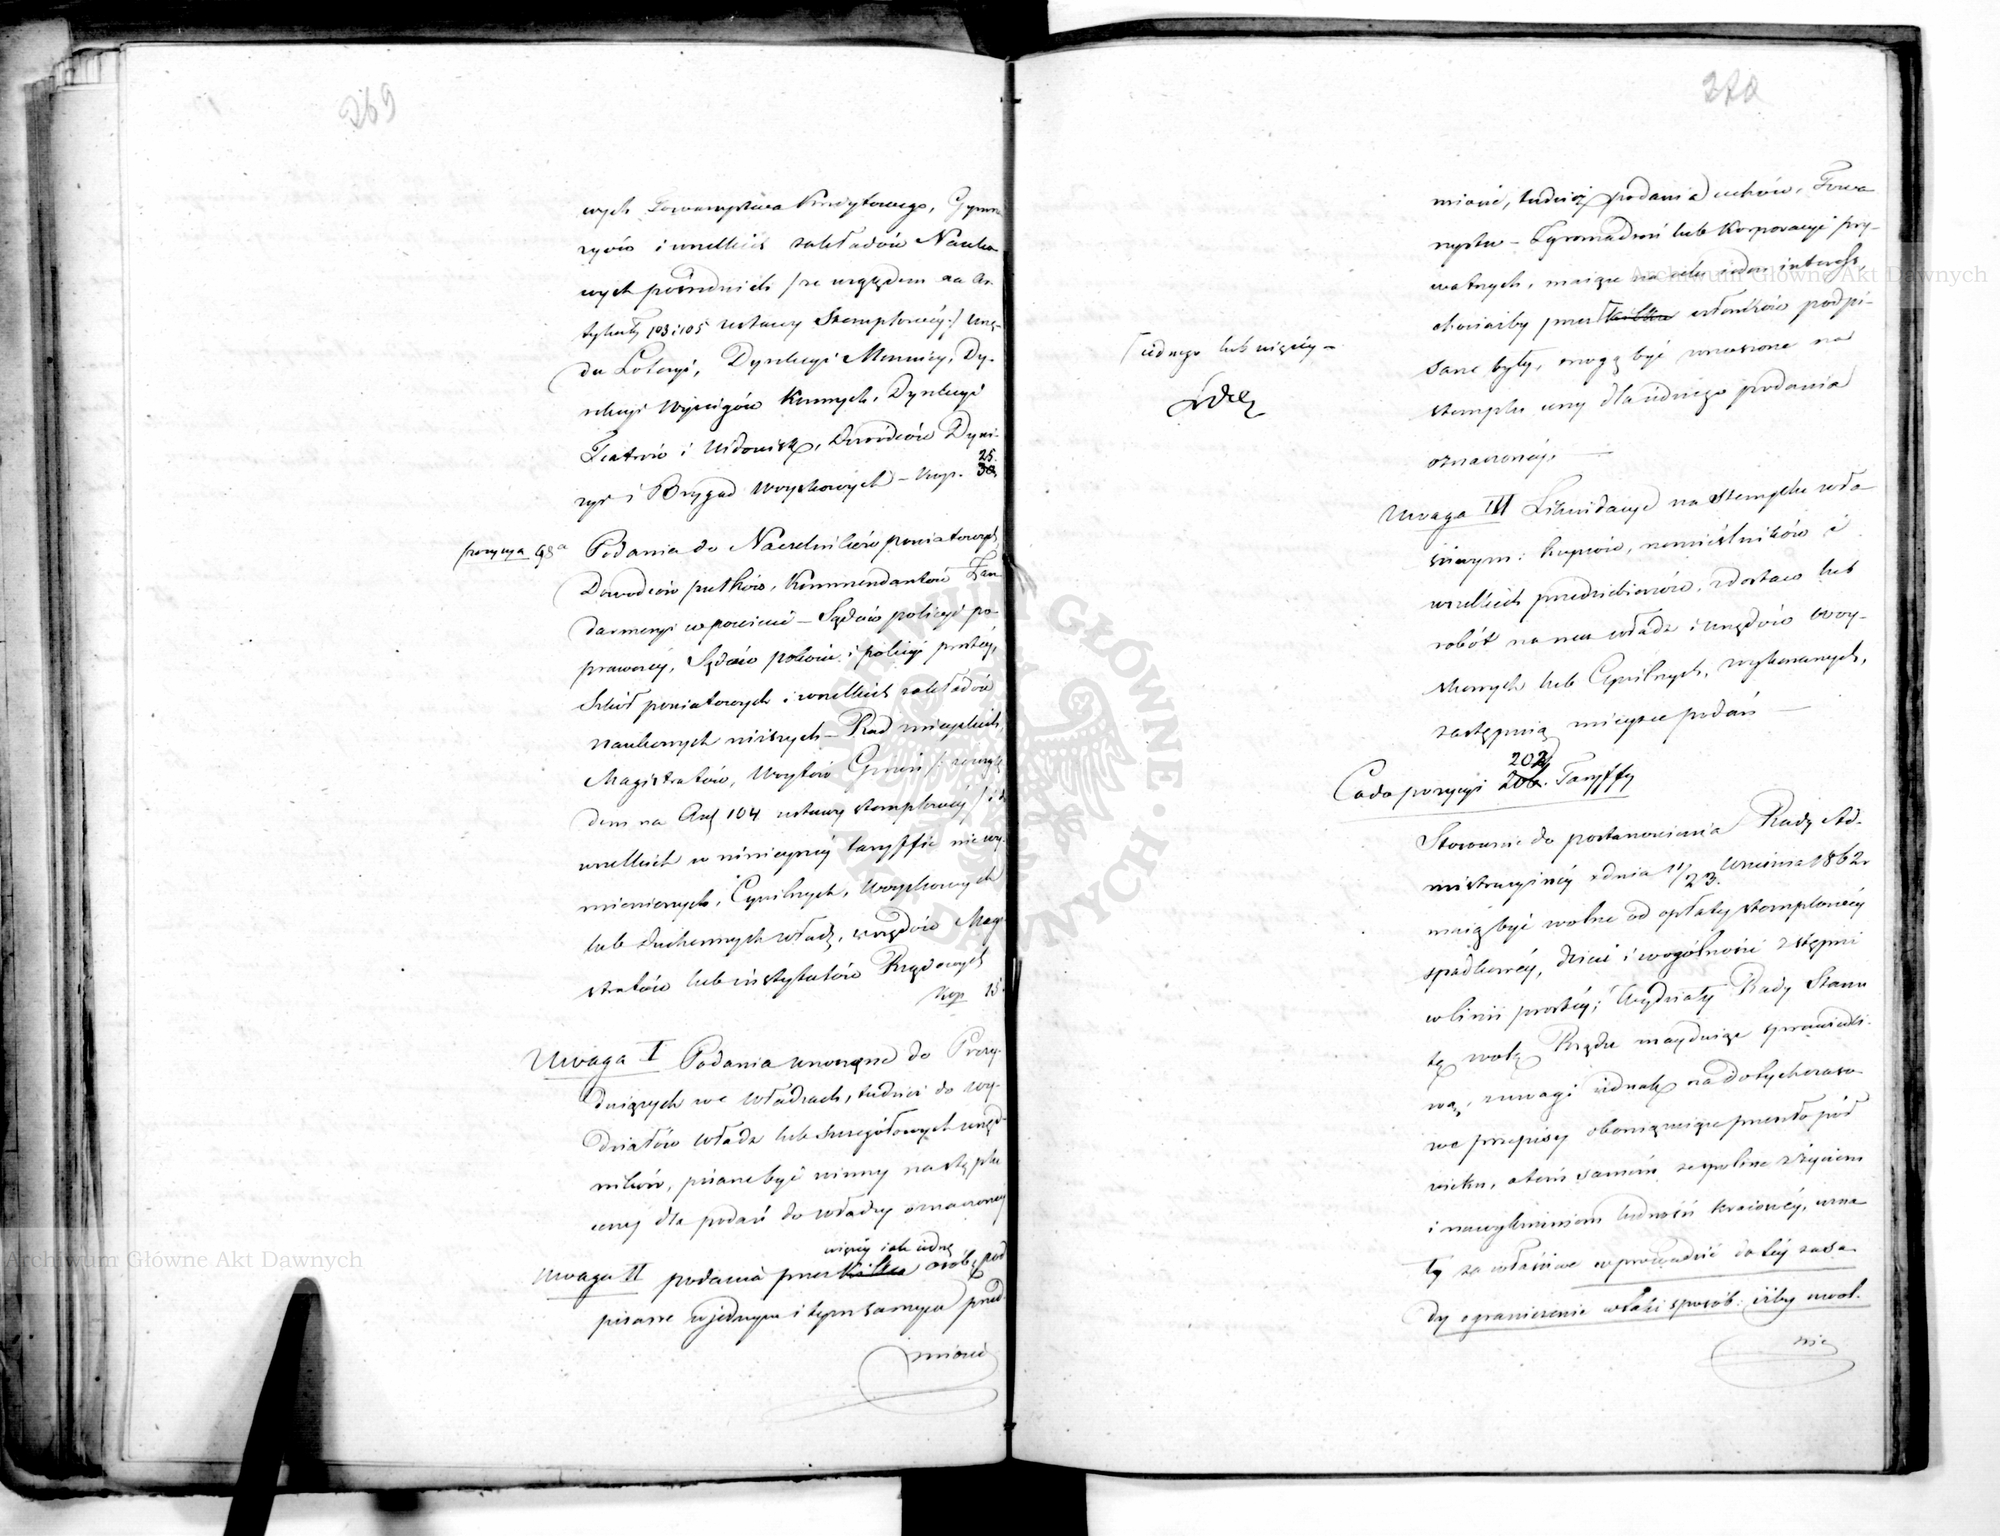 269
wych Towarzystwa Kredytowego, Gymna
zyów i wszelkich zakładów Nauko
wych pośrednich /ze względem na Ar
tykuły 103 i 105 ustawy Stemplowéj:/ Urzę-
du Loteryi, Dyrekcyi Mennicy, Dy-
rekcyi Wyścigów Konnych, Dyrekcyi
Teatrów i Widowisk, Dowódców Dywi-
25.
zyi i Brygad Woyskowych – kop. 30
pozycya 98a Podania do Naczelników powiatowych,
Dowódców pułków, Kommendantów Żan
darmeryi w powiecie – Sądów policyi po-
prawczéj, Sądów pokoiu i policyi prostéj,
Szkół powiatowych i wszelkich zakładów
naukowych niższych – Rad mieyskich,
Magistratów, Woytów Gmin /: ze wzglę
dem na Art 104 ustawy stemplowéj / i do
wszelkich w ninieyszéj taryffie nie wy-
mienionych, Cywilnych, Woyskowych
lub Duchownych władz, urzędów Magi
stratów lub instytutów Rządowych
kop 15.
Uwaga I Podania wnoszone do Prezy-
duiących we Władzach, tudzież do wy-
działów władz lub szczegółowych urzęd-
ników, pisane być winny na stęplu
ceny dla podań do władzy oznaczonéj
więcéj iak iedną
Uwaga II podania przez kilka osób, pod
pisane w jednym i tym samym przed-
miocie
270
miocie, tudzież podania cechów, Towa
rzystw – Zgromadzeń lub Korporacyi pry-
watnych, maiące na celu ieden interess,
chociażby przez kilku członków podpi-
iednego lub więcéj –
sane były, mogą być wnoszone na
stemplu ceny dla iednego podania
oznaczonéj.
Uwaga III Likwidacye na stemplu wła
ściwym: kupców, rzemieślników i
wszelkich przedsiębiorców, z dostaw lub
robót na rzecz władz i urzędów woy-
skowych lub Cywilnych, wykonanych,
zastępuią mieysce podań –
202
Co do pozycyi 206. Taryffy
Stosownie do postanowienia Rady Ad-
ministracyinéj z dnia 11/23. Września 1862 r
maią być wolne od opłaty stemplowéj
spadkowéj, dzieci i w ogólności zstępni
w linii prostéj; Wydziały Rady Stanu
tę wolę Rządu znayduiąc sprawiedli-
wą, z uwagi iednak na dotychczaso
we przepisy obowiązuiące przeszło pół
wieku, a tém samém zespolone z życiem
i nawyknieniem ludności kraiowéj, uzna
ły za właściwe wprowadzić do téj zasa
dy ograniczenie w taki sposób: iżby uwol-
nie
Archiwum Główne Akt Dawnych
Archiwum Główne Akt Dawnych
ARCHIWUM GŁÓWNE AKT DAWNYCH